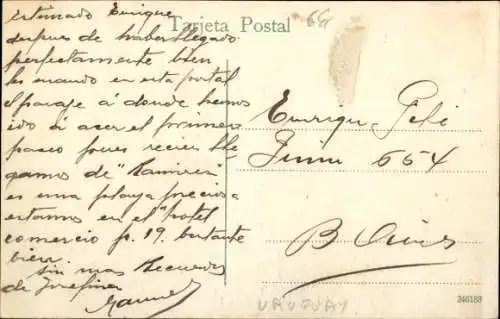 Tarjeta Postal
66
estimado Enrique
despues de haber llegado
perfectamente bien
les mando en esta postal
el paraje á donde hemos
ido á acer el primer
paseo pues recien lle
gamos de "Ramirez"
es una playa preciosa
estamos en el "hotel
comercio p. 19. bastante
bien
sin mas Recuerdos
de Josefina
Enrique
654
B Aires
246183
URUGUAY